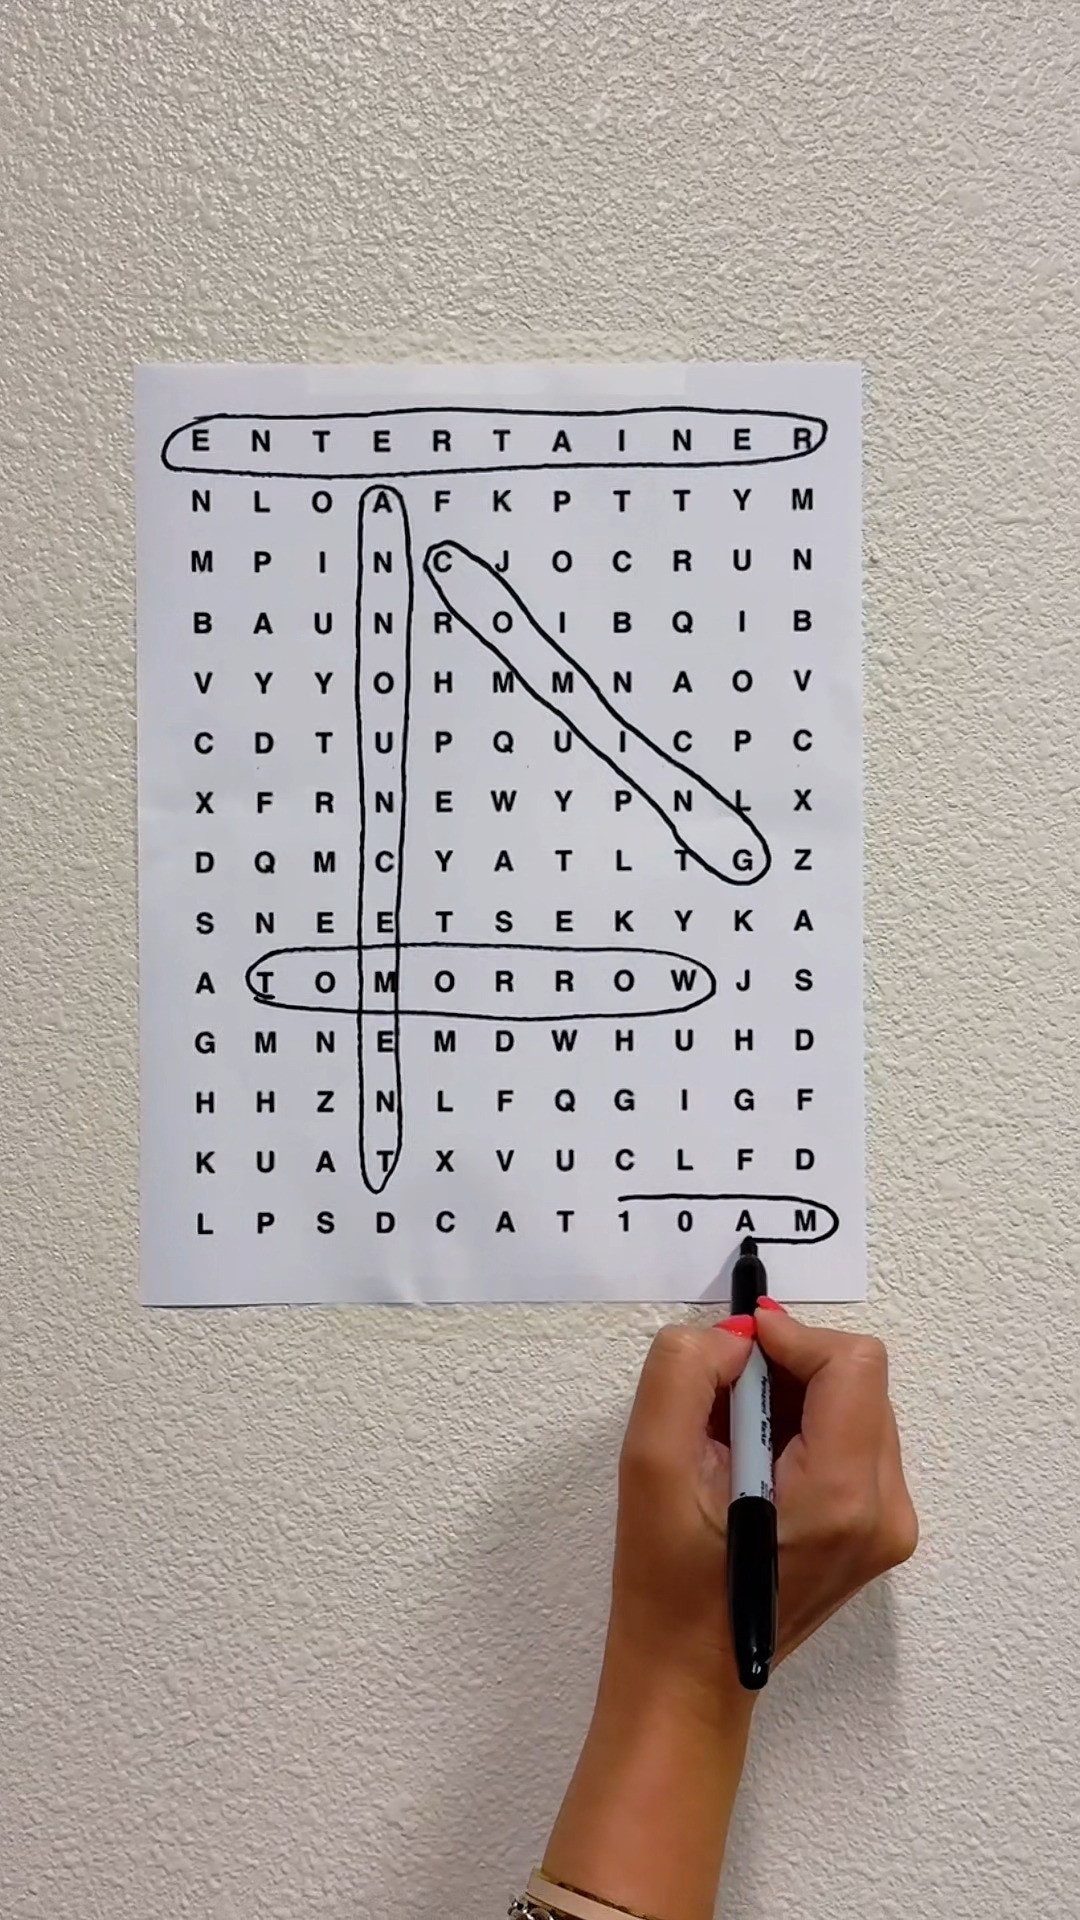 E N T E R T A I N E R
N L O A F K P T T Y M
M P I N C J O C R U N
B A U N R O I B Q I B
V Y Y O H M M N A O V
C D T U P Q U I C P C
X F R N E W Y P N L X
D Q M C Y A T L T G Z
S N E E T S E K Y K A
A T O M O R R O W J S
G M N E M D W H U H D
H H Z N L F Q G I G F
K U A T X V U C L F D
L P S D C A T 1 0 A M